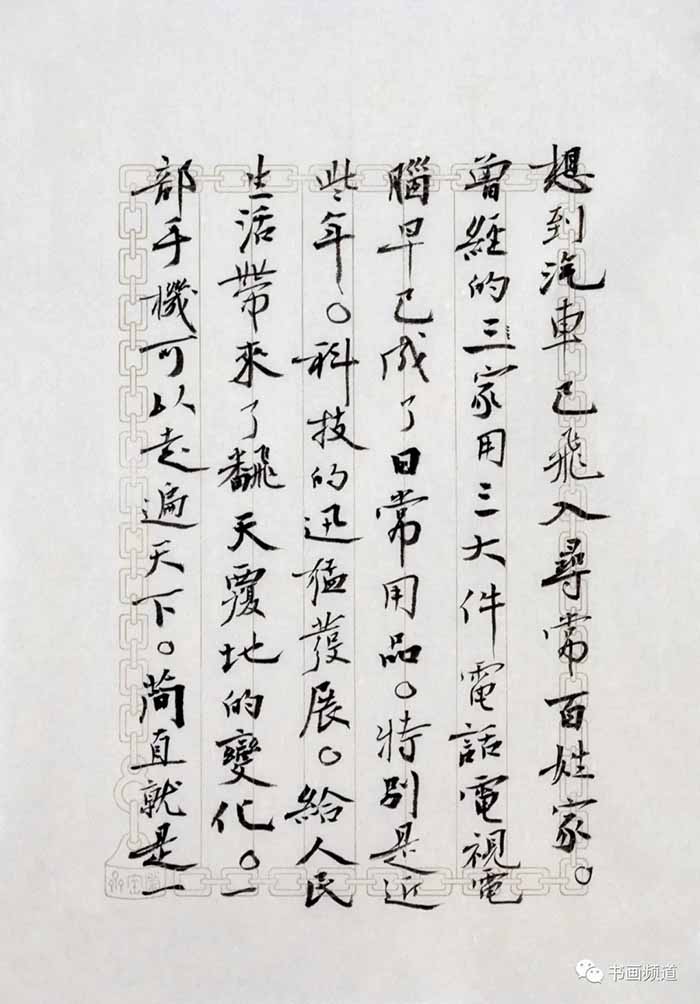 想到汽車已飛入尋常百姓家。
曾經的三家用三大件電話電視電
腦早已成了日常用品。特别是近
些年。科技的迅猛發展。給人民
生活帶來了飜天覆地的變化。一
部手機可以走遍天下。簡直就是一
书画频道